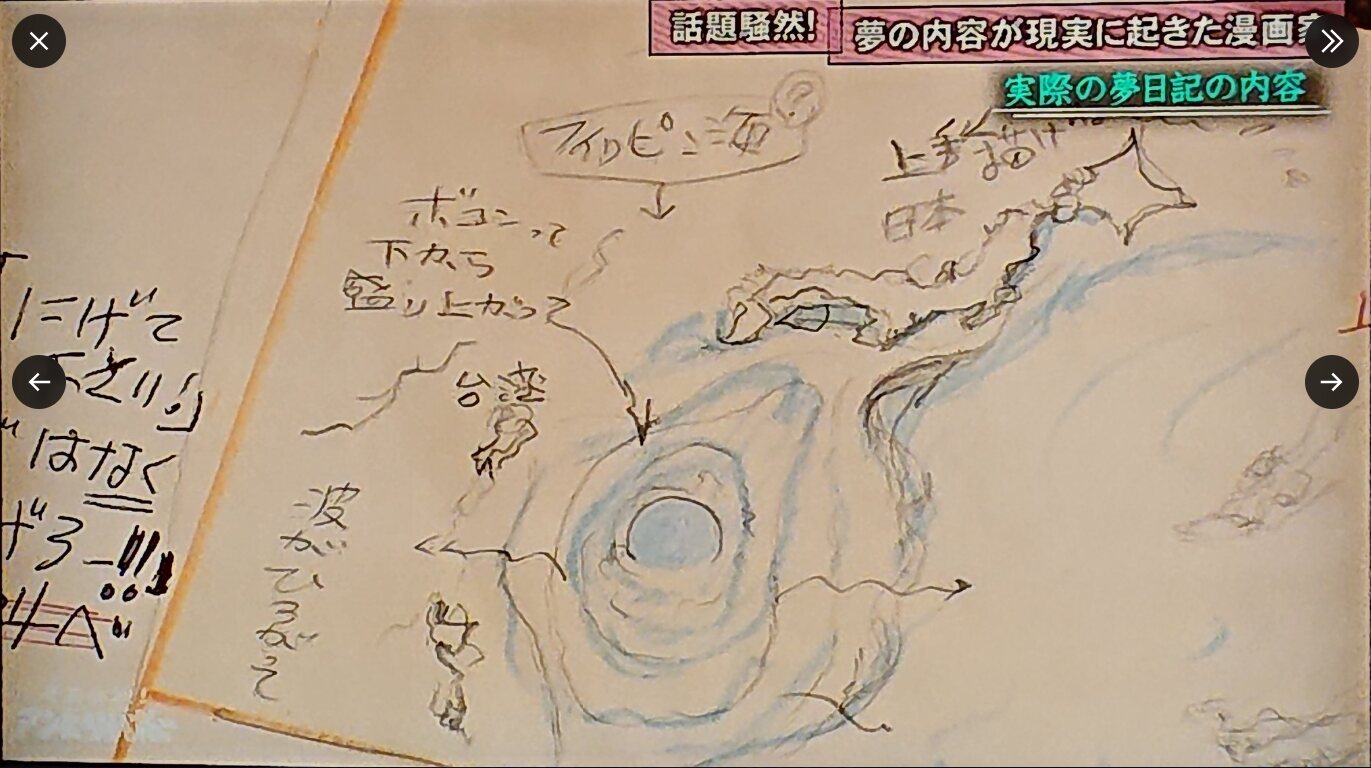 話題騒然!
夢の内容が現実に起きた漫画家
実際の夢日記の内容
フィリピン海
?
上手く描け
日本
ボコンって
下から
盛り上がって
台湾
波がひろがって
にげて
ださい!!」
ではなく
げろー!!!